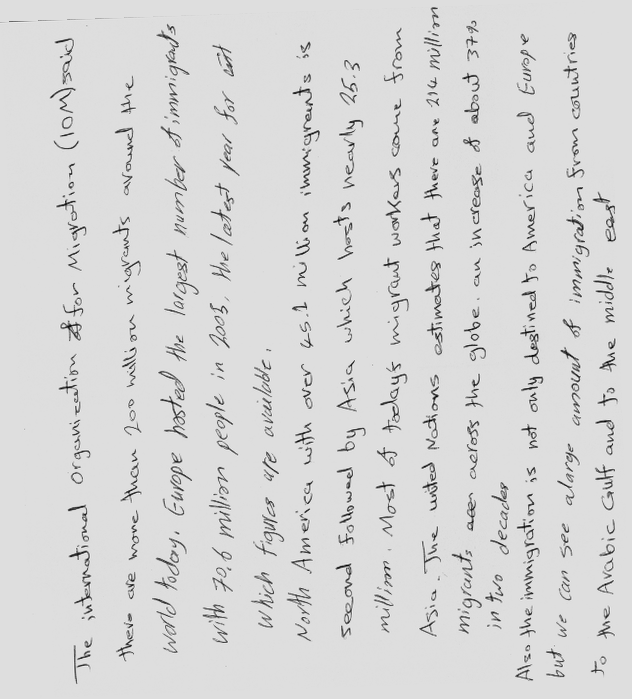 The international Organization for Migration (IOM) said
there are more than 200 million migrants around the
world today. Europe hosted the largest number of immigrants
with 70.6 million people in 2005, the latest year for
which figures are available.
North America with over 45.1 million immigrants is
second followed by Asia which hosts nearly 25.3
million. Most of today's migrant workers come from
Asia. The united Nations estimates that there are 214 million
migrants across the globe. an increase of about 37%
in two decades
Also the immigration is not only destined to America and Europe
but we can see a large amount of immigration from countries
to the Arabic Gulf and to the middle east